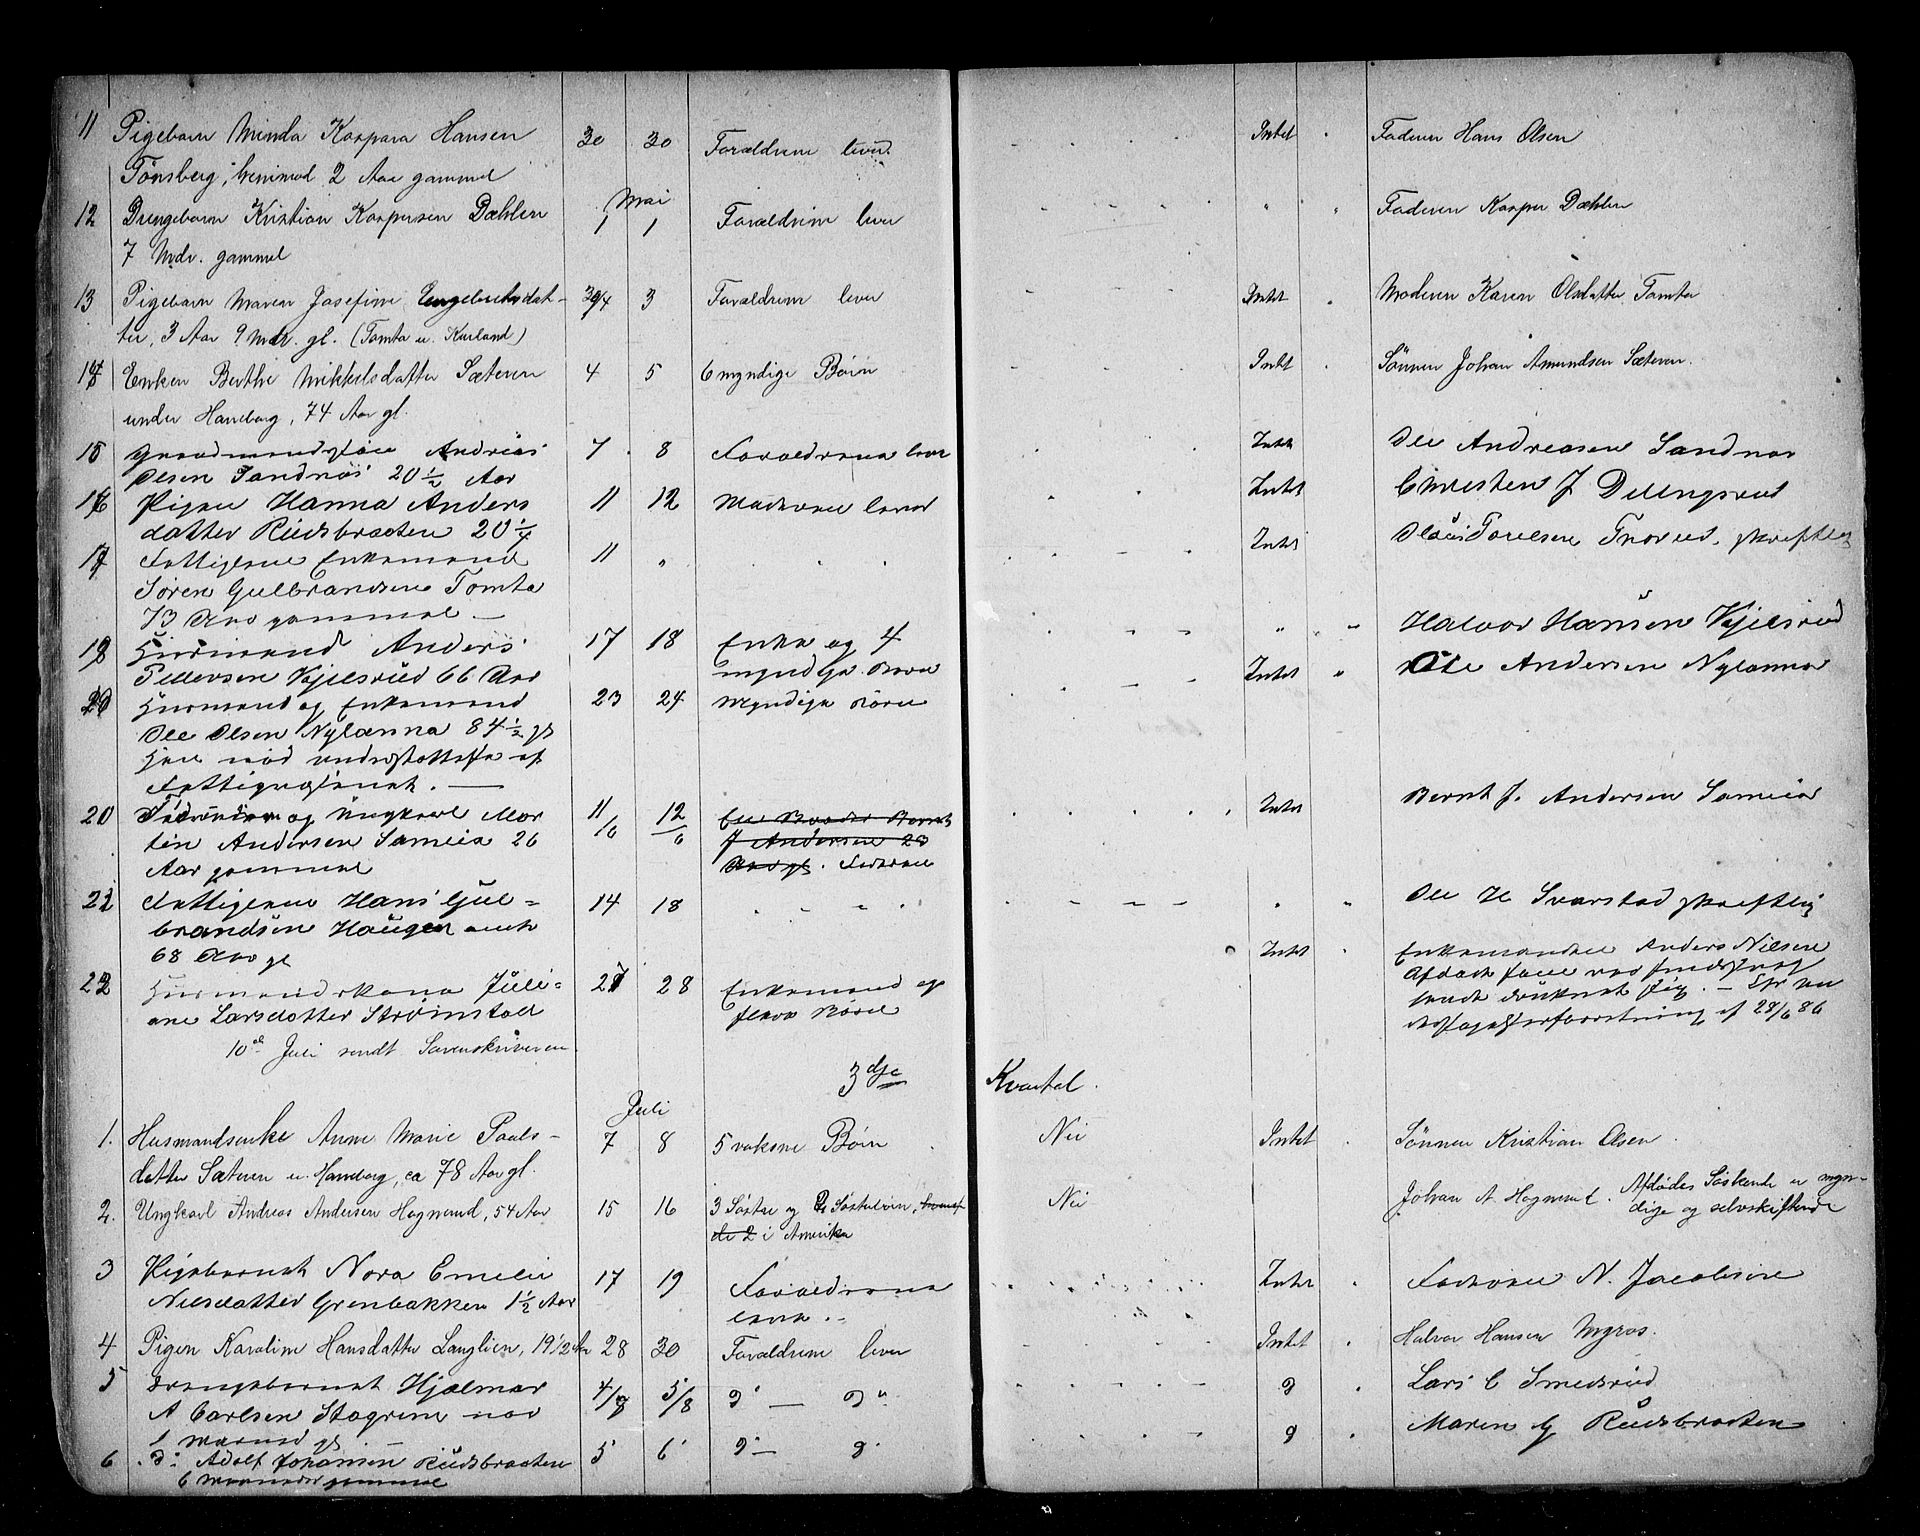 11 Pigebarn Minda Kaspara Hansen 30 30 Forældrene lever. Intet Faderen Hans Olsen
Tønsberg, 2 Aar gammel
Mai
12 Drengebarn Kristian Kaspersen Dæhlen 1 1 Forældrene lever " " Faderen Kasper Dæhlen
7 Mdr. gammel
13 Pigebarn Maren Josefine Engebretsdat- 30/4 3 Forældrene lever Intet " Moderen Karen Olsdatter Tomta
ter, 3 Aar 9 Mdr. gl. (Tomta u. Kurland)
14 Enken Berthe Mikkelsdatter Sæteren 4 5 6 myndige Børn Intet Sønnen Johan Amundsen Sæteren.
under Haneborg, 74 Aar gl.
15 Andreas 7 8 Forældrene lever Intet Ole Andreasen Sandnæs
Olsen Sandnæs 20 1/2 Aar
16 Pigen Hanna Anders 11 12 Moderen lever Intet Christen J Dillingsrud
datter Rüdsbraaten 20 1/4
17 Fattigene Enkemand 11 " Intet Torelsen skriftlig
Søren Gulbrandsen Tomta
73 Aar gammel —
18 Husmand Anders 17 18 Enke og 4 " " Halvor Hansen Kjelsrüd
Pettersen Kjelsrüd 66 Aar myndige Børn Intet " Ole Andersen Nylænna
Husmand og Enkemand 23 24 Myndige Børn
Ole Olsen Nylænna 84 1/2 gl
Har nød understøttelse af
Fattigvæsenet. —
20 og Ungkarl Mar 11/6 12/6 En Broder Bernt Intet Bernt J. Andersen Sameia
tin Andersen Sameia 26 J Andersen 23
Aar gammel Aar gl. Faderen
21 Fattigene Hans Gul= 14 18 " " Ole H Svarstad skriftlig
brandsen Haugen
68 Aar gl
22 Husmandskone Juli= 27 28 Enkemand og Intet " Enkemanden Anders Nilsen
ane Larsdatter Strømstad flere Børn
28/6 86
10de Juli sendt Sorenskriveren
3dje Kvartal.
Juli
1. Husmandsenke Anne Marie Paals- 7 8 5 voksne Børn Nei Intet Sønnen Kristian Olsen.
datter Sæteren u. Haneborg, ca 78 Aar gl.
2. Ungkarl Andreas Andersen Hognerud, 54 Aar 15 16 3 Søstre og Søsterbørn, hvoraf Nei Johan A. Hognerud. Afdødes Søskende er myn-
de 2 i Amerika dige og selvskiftende
3 Pigebarnet Nora Emelie 17 19 Forældrene Intet Faderen N. Jacobsen
Nilsdatter Grenbakken 1 1/2 Aar lever. -
4 Pigen Karoline Hansdatter Langlien, 19 1/2 Aar 28 30 Forældrene lever Intet Halvor Hansen Myras.
5 Drengebarnet Hjalmar 4/8 5/8 do — do Lars C Smedsrüd
A Carlsen
gl
6 do Adolf Johansen Rüdsbraaten 5 6 do — do Maren G Rüdsbraaten
6 Maaneder gammel